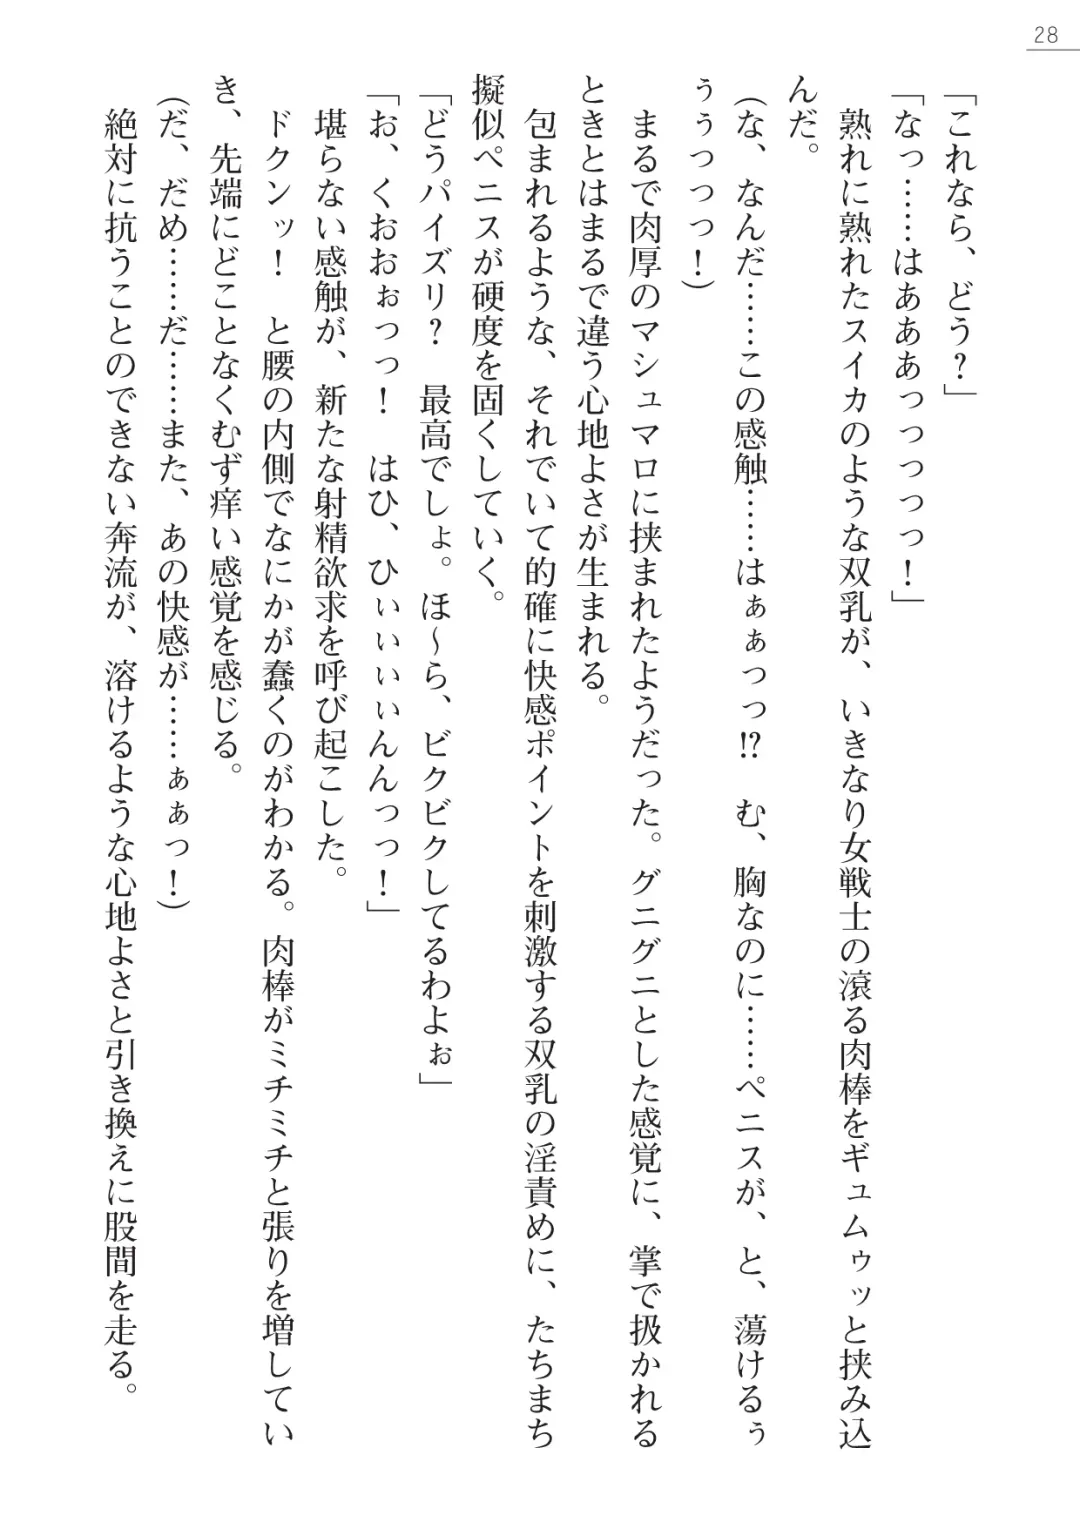 28
「これなら、どう？」
「なっ……はあああっっっっっ！」
　熟れに熟れたスイカのような双乳が、いきなり女戦士の滾る肉棒をギュムゥッと挟み込
んだ。
（な、なんだ……この感触……はぁぁっっ!?　む、胸なのに……ペニスが、と、蕩けるぅ
ぅぅっっっ！）
　まるで肉厚のマシュマロに挟まれたようだった。グニグニとした感覚に、掌で扱かれる
ときとはまるで違う心地よさが生まれる。
　包まれるような、それでいて的確に快感ポイントを刺激する双乳の淫責めに、たちまち
擬似ペニスが硬度を固くしていく。
「どうパイズリ？　最高でしょ。ほ～ら、ビクビクしてるわよぉ」
「お、くおおぉっっ！　はひ、ひぃぃぃぃんんっっ！」
　堪らない感触が、新たな射精欲求を呼び起こした。
　ドクンッ！　と腰の内側でなにかが蠢くのがわかる。肉棒がミチミチと張りを増してい
き、先端にどことなくむず痒い感覚を感じる。
（だ、だめ……だ……また、あの快感が……ぁぁっ！）
　絶対に抗うことのできない奔流が、溶けるような心地よさと引き換えに股間を走る。